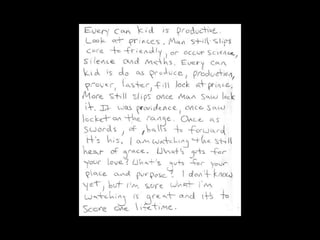 Every can kid is productive.
Look at princes. Man still slips
core to friendly, or occur science,
silence and maths. Every can
kid is do as produce, production,
prover, laster, fill look at prince.
More still slips once man saw lock
it. It was providence, once saw
locket on the range. Once as
swords, of, balls to forward
It's his. I am watching the still
heart of grace. What's guts for
your love? What's guts for your
place and purpose? I don't know
yet, but I'm sure what I'm
watching is great and it's to
score one lifetime.